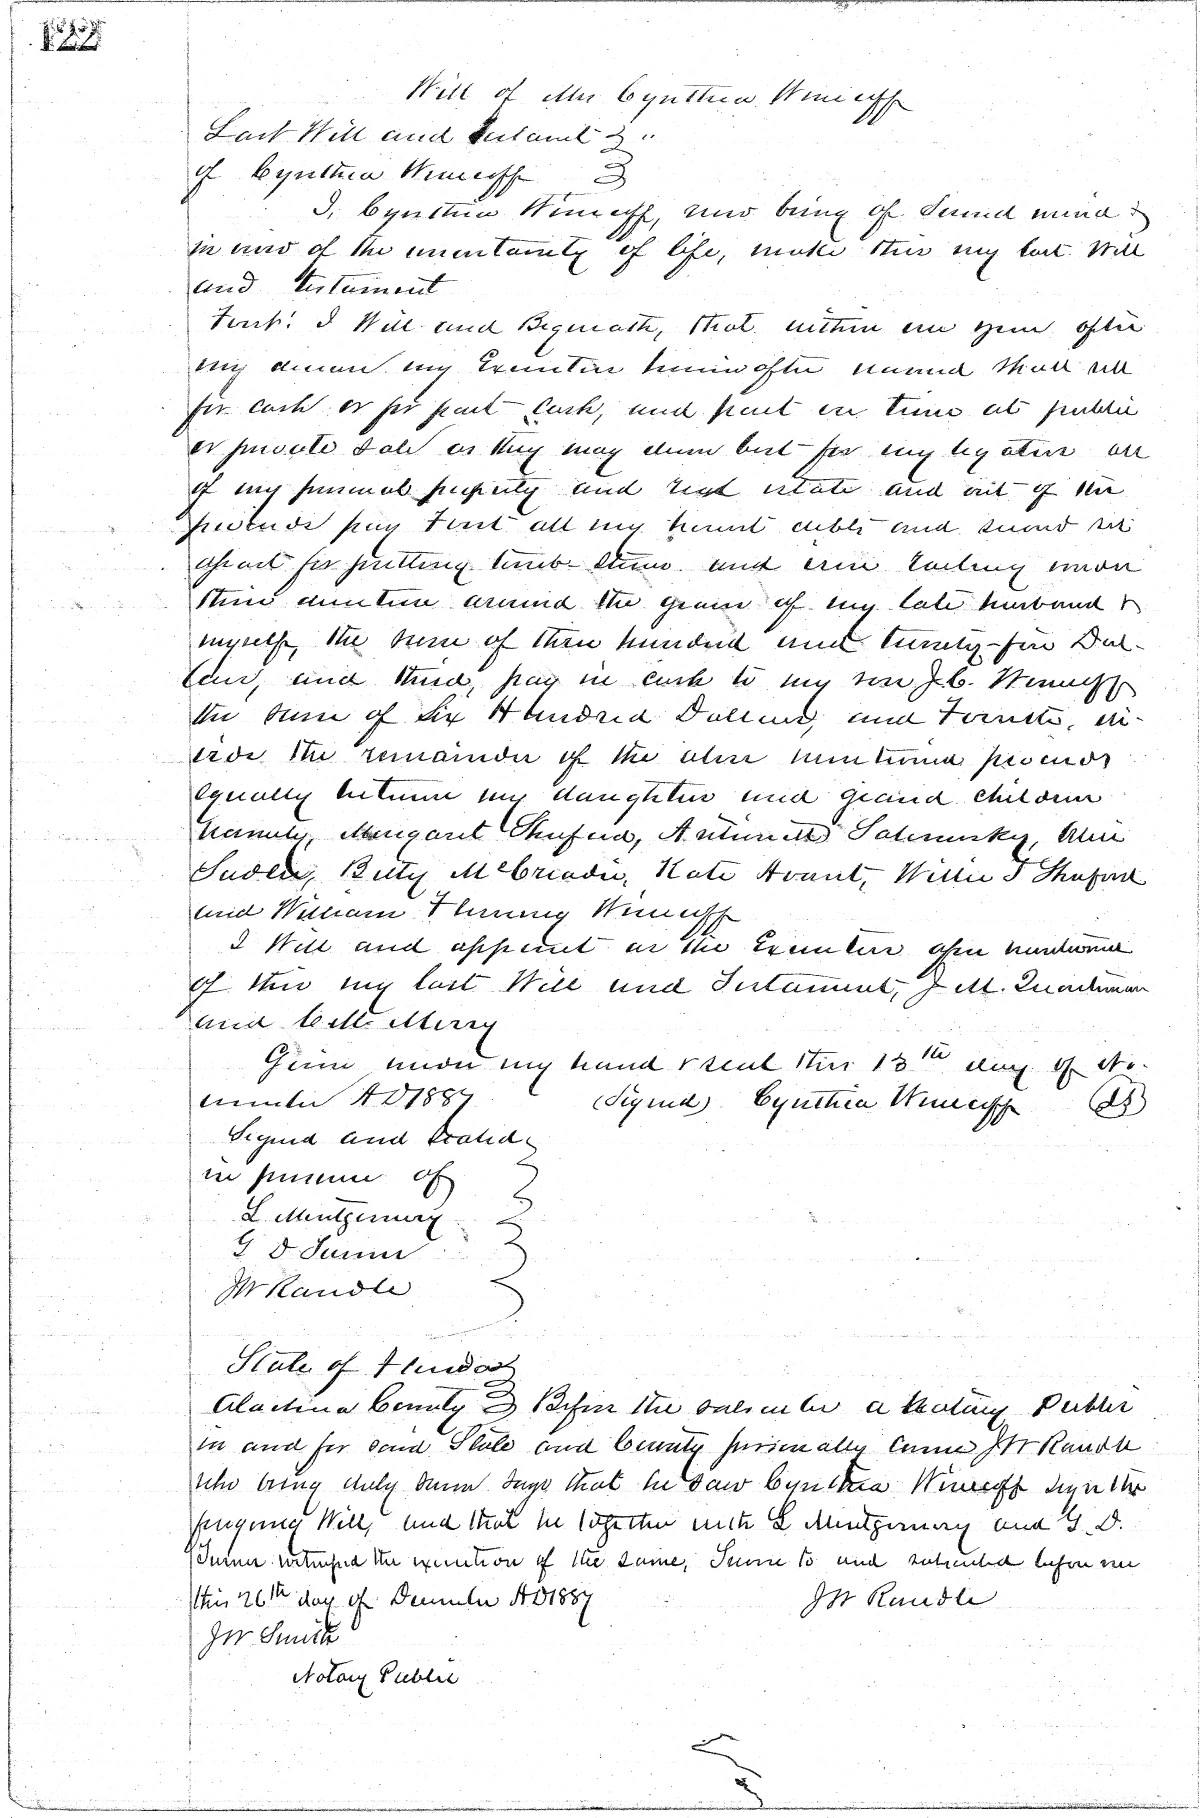 Will of Mrs Cynthia Winecoff
Last Will and Testamt
of Cynthia Winecoff
I, Cynthia Winecoff, now being of sound mind &
in view of the uncertainty of life, make this my last Will
and testament
First: I Will and Bequeath, that within one year after
my demise my Executors hereinafter named shall sell
for cash or for part cash, and part on time at public
or private sale as they may deem best for my legatees all
of my personal property and real estate and out of the
proceeds pay First all my honest debts and second set
apart for putting tomb stone and iron railing upon
stone around the graves of my late husband &
myself, the sum of three hundred and twenty-five Dol-
lars, and third, pay in cash to my son J. C. Winecoff
the sum of Six Hundred Dollars, and Fourth, di-
vide the remainder of the above mentioned proceeds
equally between my daughters and grand children
Namely, Margaret Shuford, Antoinette Saterwsky, Alice
Sudler, Betty McCreadie, Kate Avant, Willie T Shuford
and William Fleming Winecoff
I Will and appoint as the Executors afore mentioned
of this my last Will and Testament, J. M. Quarterman
and C M Merry
Given under my hand & seal this 13th day of No-
vember A D 1887 (Signed) Cynthia Winecoff (LS)
Signed and sealed
in presence of
L. Montgomery
G D Turner
JW Randle
State of Florida
Alachua County Before the subscriber a Notary Public
in and for said State and County personally came JW Randle
who being duly sworn says that he saw Cynthia Winecoff sign the
foregoing Will, and that he together with L Montgomery and G. D.
Turner witnessed the execution of the same, Sworn to and subscribed before me
this 26th day of December A D 1887 JW Randle
JW Smith
Notary Public